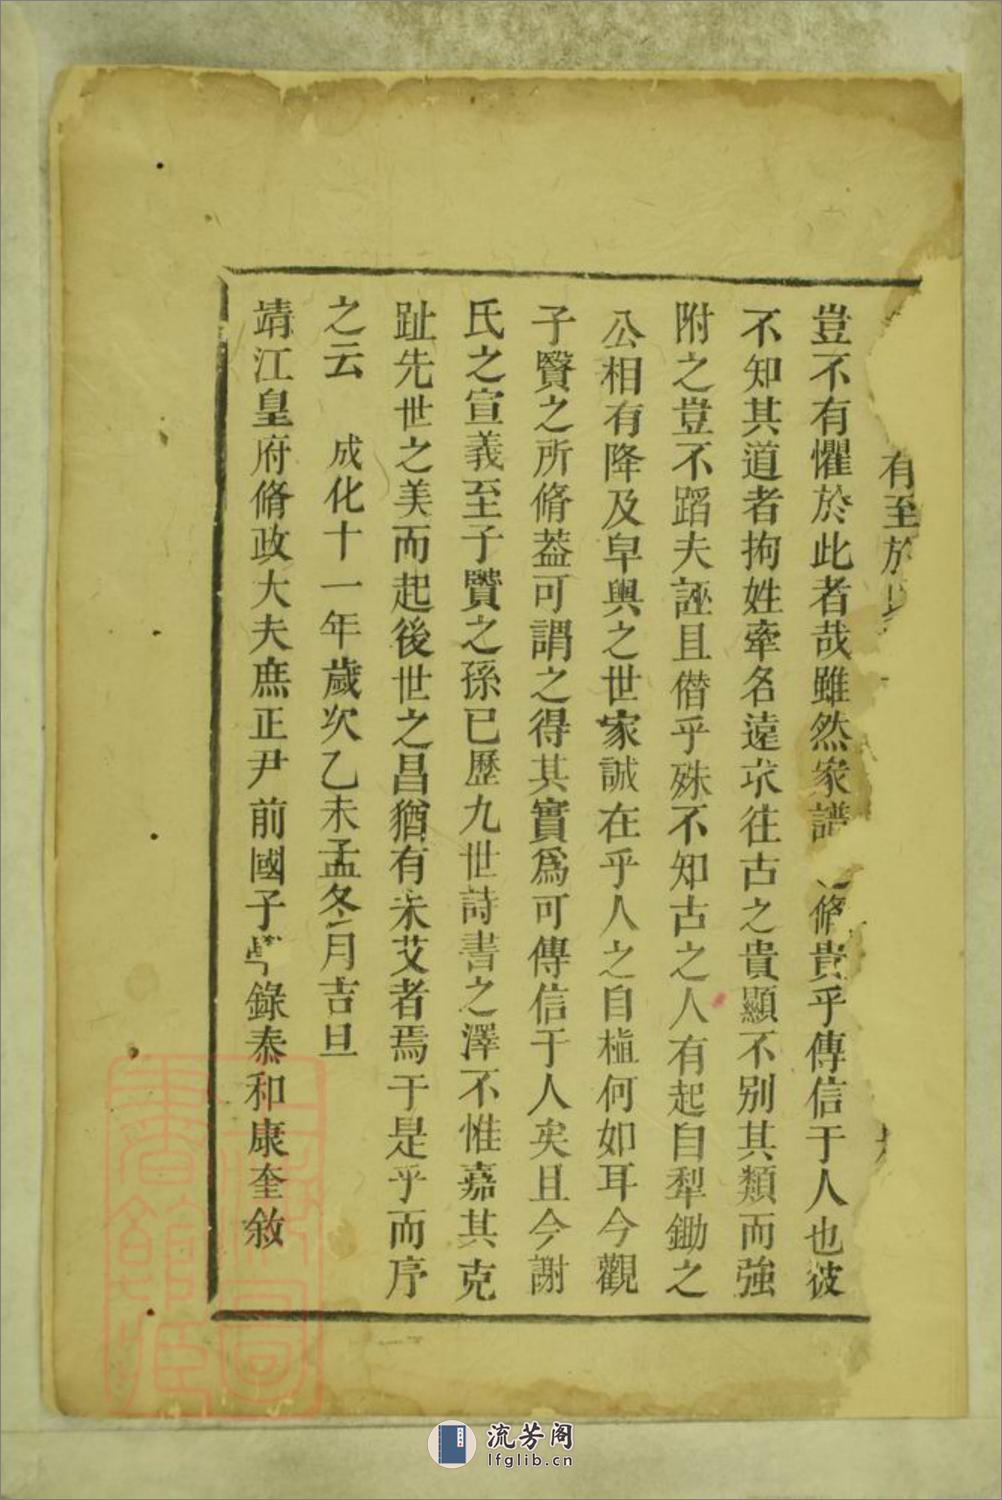 有至於
豈不有懼於此者哉雖然家譜脩貴乎傳信于人也彼
不知其道者拘姓牽名遠求往古之貴顯不别其類而強
附之豈不蹈夫誣且僣乎殊不知古之人有起自犁鋤之
公相有降及皁輿之世家誠在乎人之自植何如耳今觀
子賢之所脩葢可謂之得其實爲可傳信于人矣且今謝
氏之宣義至子贒之孫已歷九世詩書之澤不惟嘉其克
趾先世之美而起後世之昌猶有未艾者焉于是乎而序
之云　成化十一年歲次乙未孟冬月吉旦
靖江皇府脩政大夫庶正尹前國子學錄泰和康奎敘
流芳阁
lfglib.cn